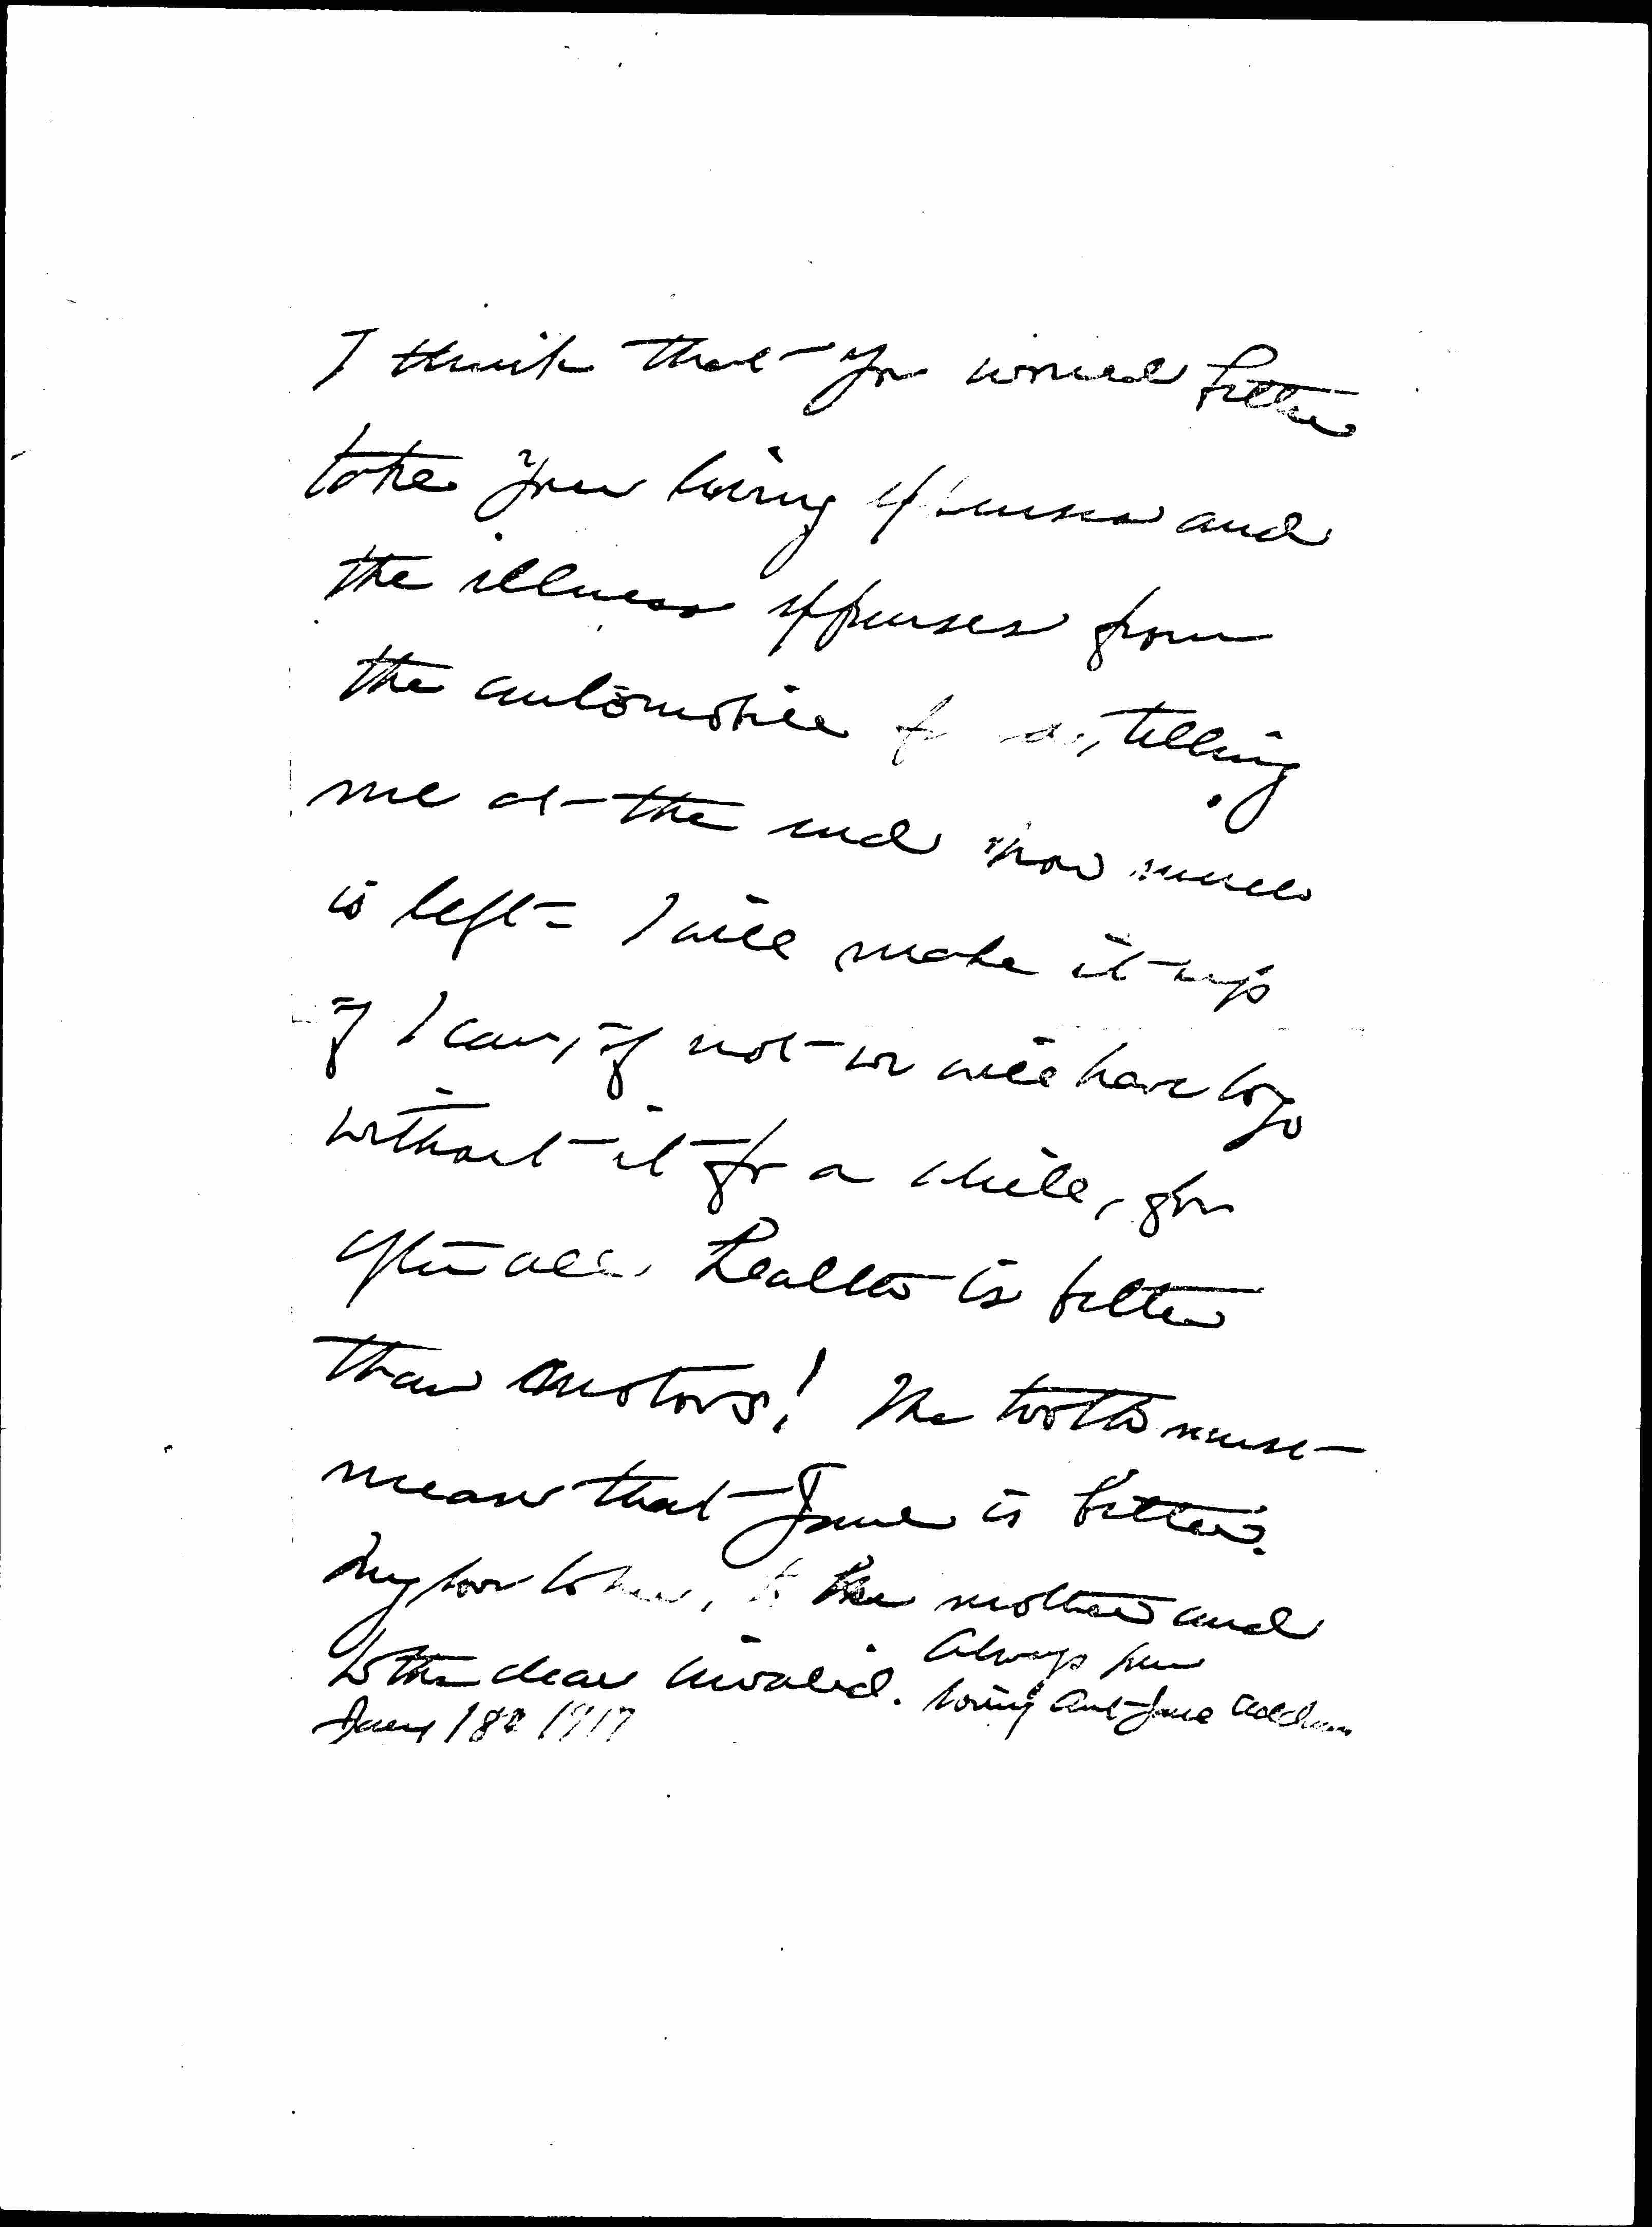 I think that you would better
take your living expenses and
the illness expenses from
the automobile telling
me at the end how much
is left = I will make it up
if I can, if not we will have to go
without it for a while, for
after all health is better
than motors! The tooth must
mean that Jane is better.
My love to her, to the mother and
to the dear invalid. Always your
loving Aunt Jane Addams
Jany 18" 1917